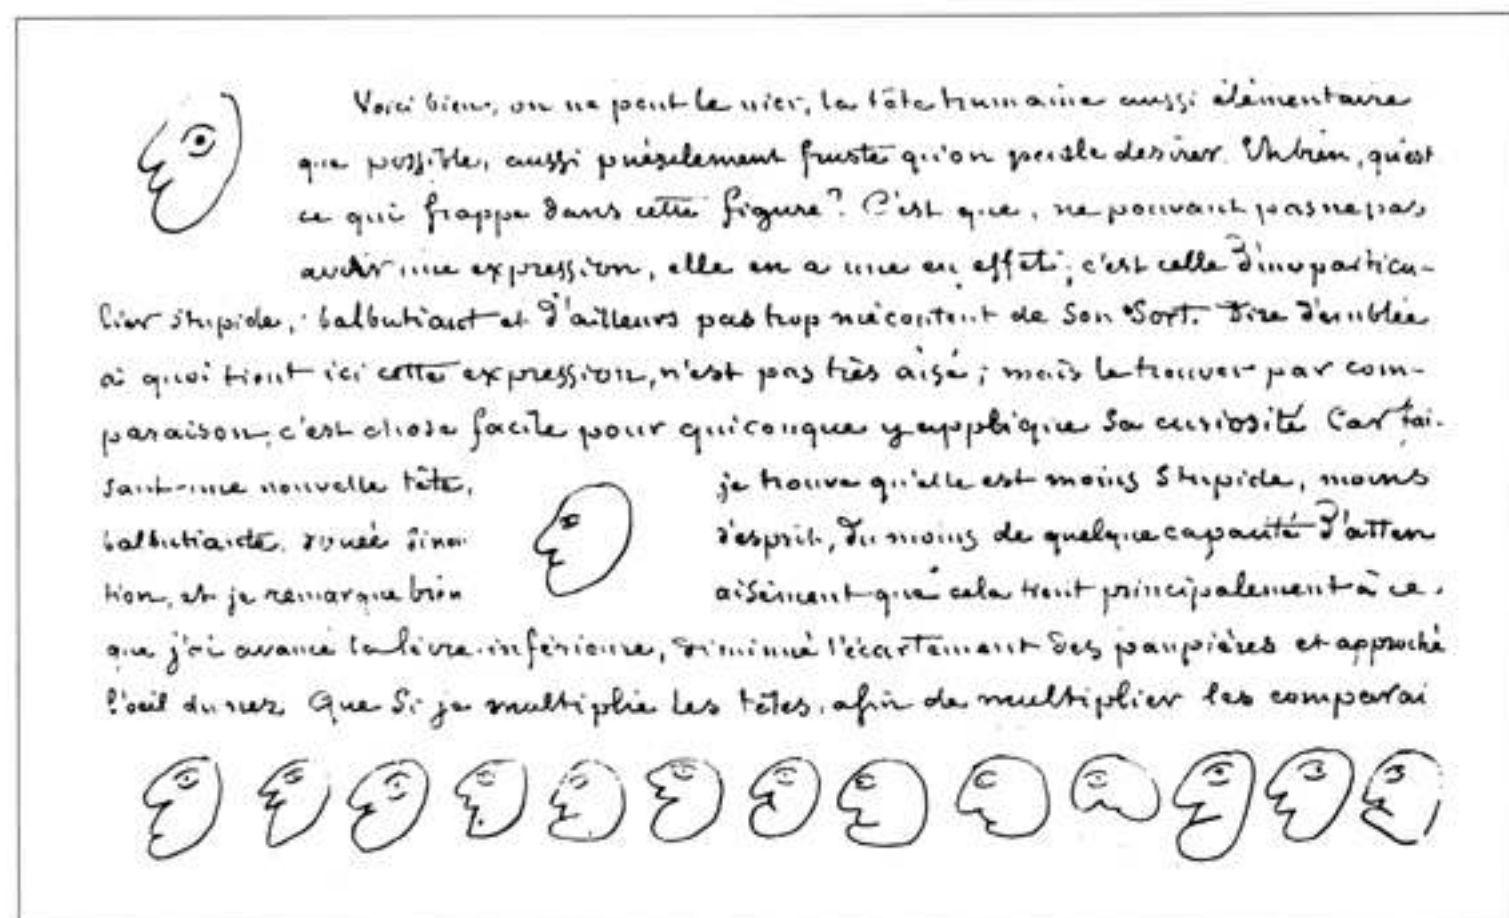 Voici bien, on ne peut le nier, la tête humaine aussi élémentaire
que possible, aussi puérilement fruste qu'on puisse desirer. Eh bien, qu'est
ce qui frappe dans cette figure? C'est que, ne pouvant pas ne pas
avoir une expression, elle en a une en effet; c'est celle d'un particu-
lier stupide, balbutiant et d'ailleurs pas trop mécontent de son sort. Dire d'emblée
à quoi tient ici cette expression, n'est pas très aisé; mais la trouver par com-
paraison, c'est chose facile pour quiconque y applique sa curiosité Car fai-
sant une nouvelle tête, je trouve qu'elle est moins stupide, moins
balbutiante, douée sinon d'esprit, du moins de quelque capacité d'atten
tion, et je remarque bien aisément que cela tient principalement à ce
que j'ai avancé la lèvre inférieure, diminué l'écartement des paupières et approché
l'oeil du nez Que si je multiplie les têtes, afin de multiplier les comparai